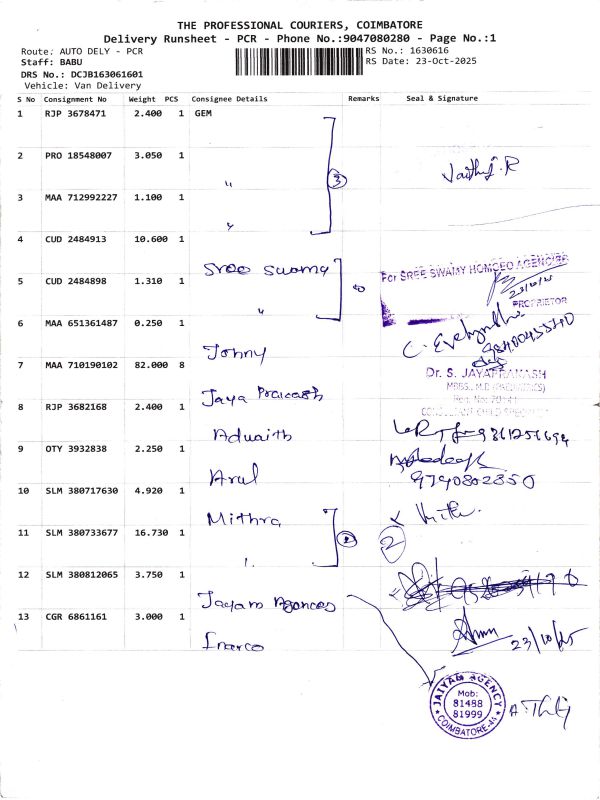 THE PROFESSIONAL COURIERS, COIMBATORE
Delivery Runsheet - PCR - Phone No.:9047080280 - Page No.:1
Route: AUTO DELY - PCR
RS No.: 1630616
Staff: BABU
RS Date: 23-Oct-2025
DRS No.: DCJB163061601
Vehicle: Van Delivery
S No Consignment No Weight PCS Consignee Details Remarks Seal & Signature
1 RJP 3678471 2.400 1 GEM
2 PRO 18548007 3.050 1
" 3
3 MAA 712992227 1.100 1
"
4 CUD 2484913 10.600 1
Sree Swamy
For SREE SWAMY HOMOEO AGENCIES
23/10/25
PROPRIETOR
5 CUD 2484898 1.310 1
"
6 MAA 651361487 0.250 1
Johny
9840045540
7 MAA 710190102 82.000 8
Jaya Pracash
Dr. S. JAYAPRAKASH
8 RJP 3682168 2.400 1
Aduaith
9 OTY 3932838 2.250 1
Arul
9790802350
10 SLM 380717630 4.920 1
Mithra
11 SLM 380733677 16.730 1
2
12 SLM 380812065 3.750 1
Jayam Agences
13 CGR 6861161 3.000 1
23/10/25
JAIYAM AGENCY
Mob:
81488
81999
COIMBATORE-44